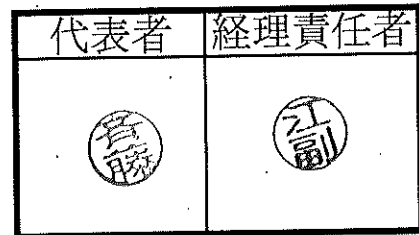 代表者 経理責任者
斉藤 江副